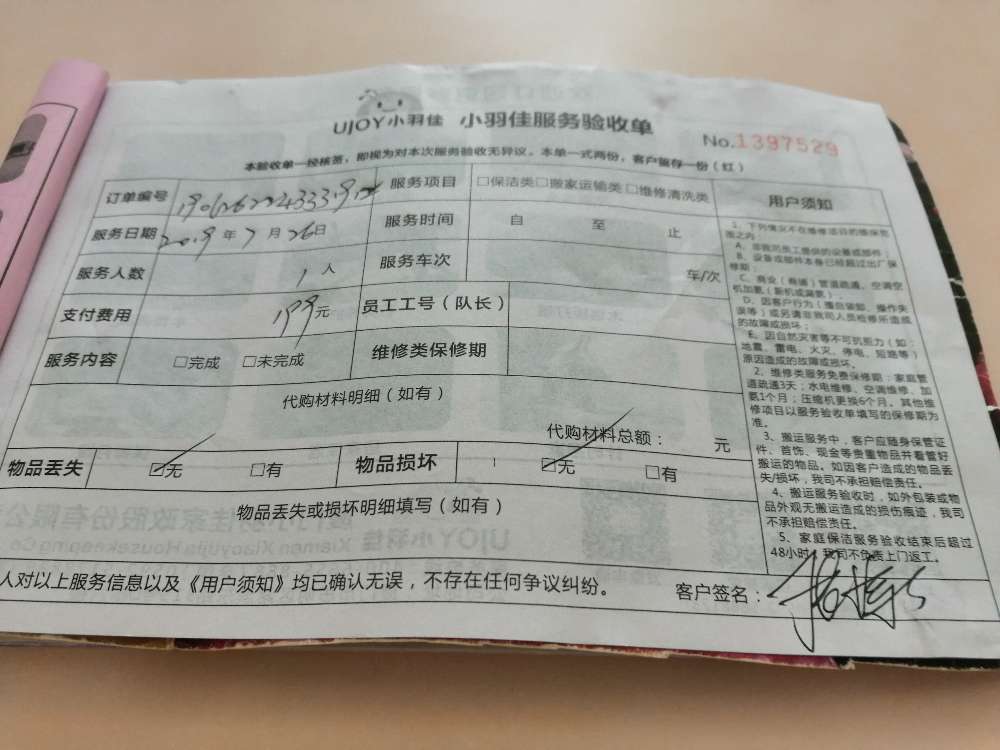 UJOY小羽佳 小羽佳服务验收单
No.1397529
本验收单一经核签，即视为对本次服务验收无异议。本单一式两份，客户留存一份（红）
订单编号 服务项目 □保洁类□搬家运输类□维修清洗类
服务日期 2019年7月26日 服务时间 自 至 止
服务人数 1人 服务车次 车/次
支付费用 199元 员工工号（队长）
服务内容 □完成 □未完成 维修类保修期
代购材料明细（如有）
代购材料总额： 元
物品丢失 ☑无 □有 物品损坏 ☑无 □有
物品丢失或损坏明细填写（如有）
人对以上服务信息以及《用户须知》均已确认无误，不存在任何争议纠纷。
客户签名：
用户须知
1、下列情况不在维修项目的维保范
围之内：
A、非我司员工提供的设备或部件；
B、设备或部件本身已经超过出厂保
修期；
C、商业（商铺）管道疏通、空调空
机加氨（新机或漏氨）；
D、因客户行为（擅自装卸、操作失
误等）或另请非我司人员检修所造成
的故障或损坏；
E、因自然灾害等不可抗拒力（如：
地震、雷电、火灾、停电、短路等）
原因造成的故障或损坏。
2、维修类服务免费保修期：家庭管
道疏通3天；水电维修、空调维修、加
氨1个月；压缩机更换6个月。其他维
修项目以服务验收单填写的保修期为
准。
3、搬运服务中，客户应随身保管证
件、首饰、现金等贵重物品并看管好
搬运的物品。如因客户造成的物品丢
失/损坏，我司不承担赔偿责任。
4、搬运服务验收时，如外包装或物
品外观无搬运造成的损伤痕迹，我司
不承担赔偿责任。
5、家庭保洁服务验收结束后超过
48小时，我司不负责上门返工。